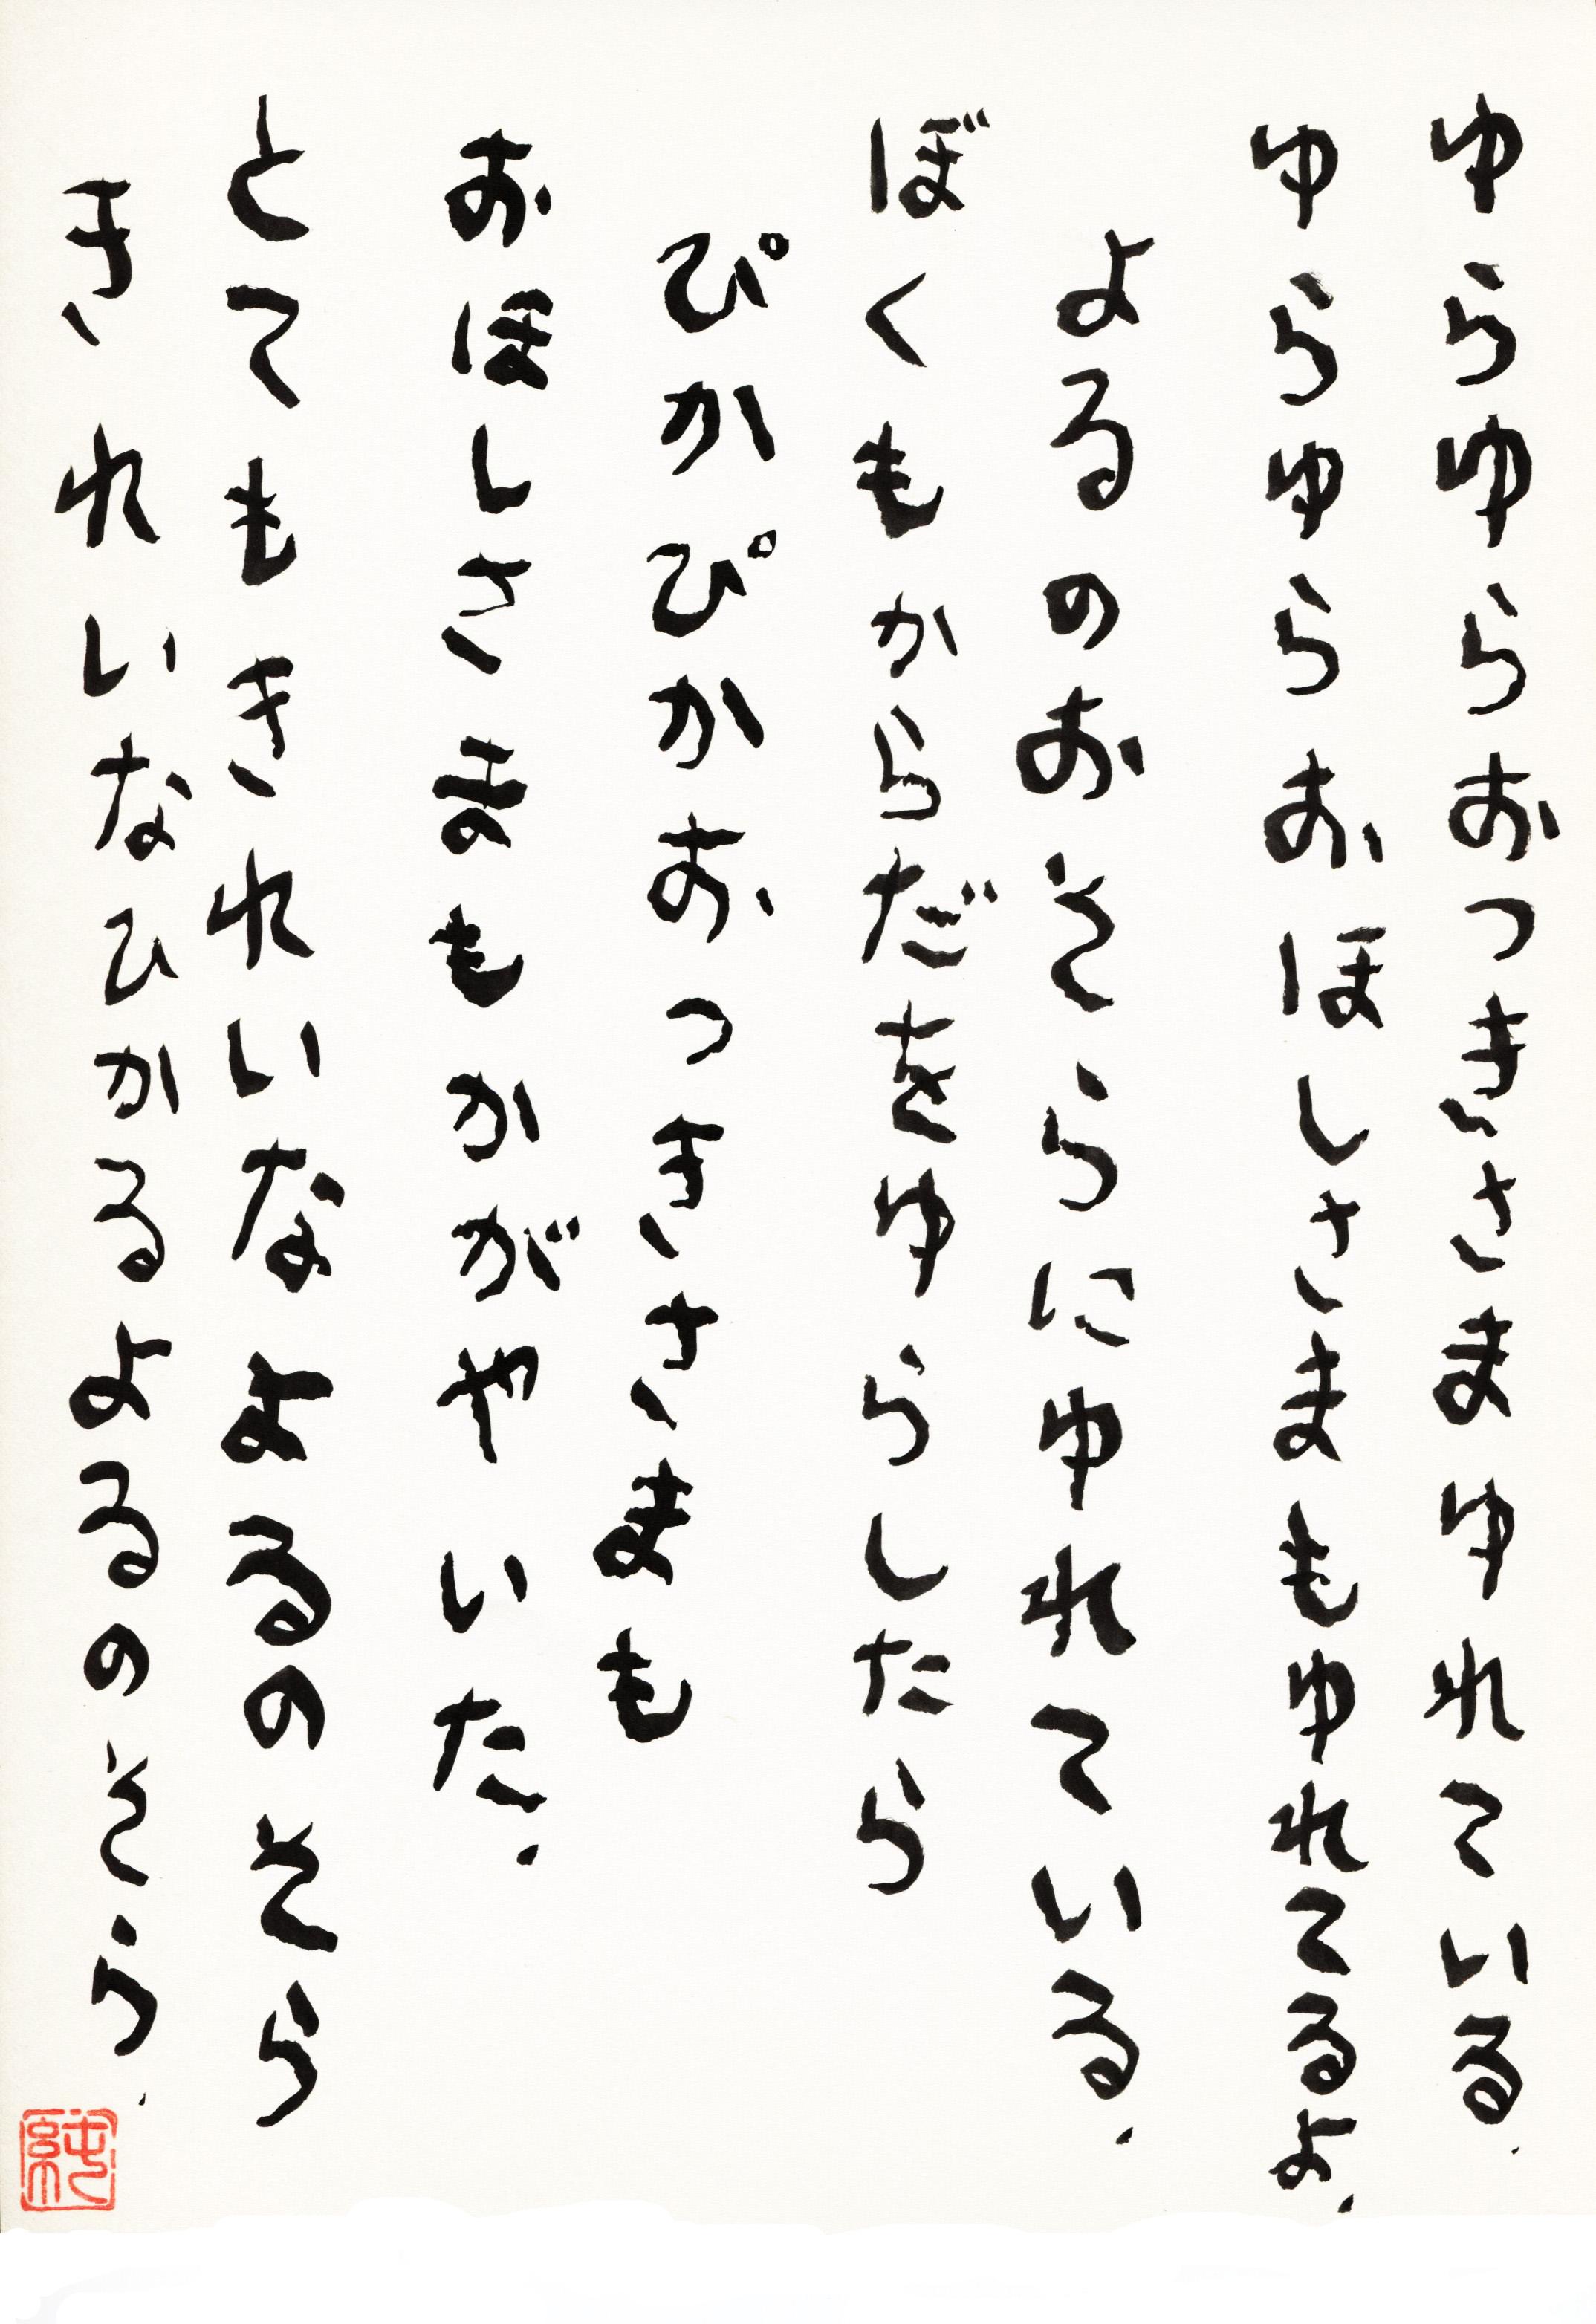 ゆらゆらおつきさまゆれている.
ゆらゆらおほしさまもゆれてるよ.
よるのおそらにゆれている.
ぼくもからだをゆらしたら
ぴかぴかおつきさまも
おほしさまもかがやいた.
とてもきれいなよるのそら
きれいなひかるよるのそら.
純